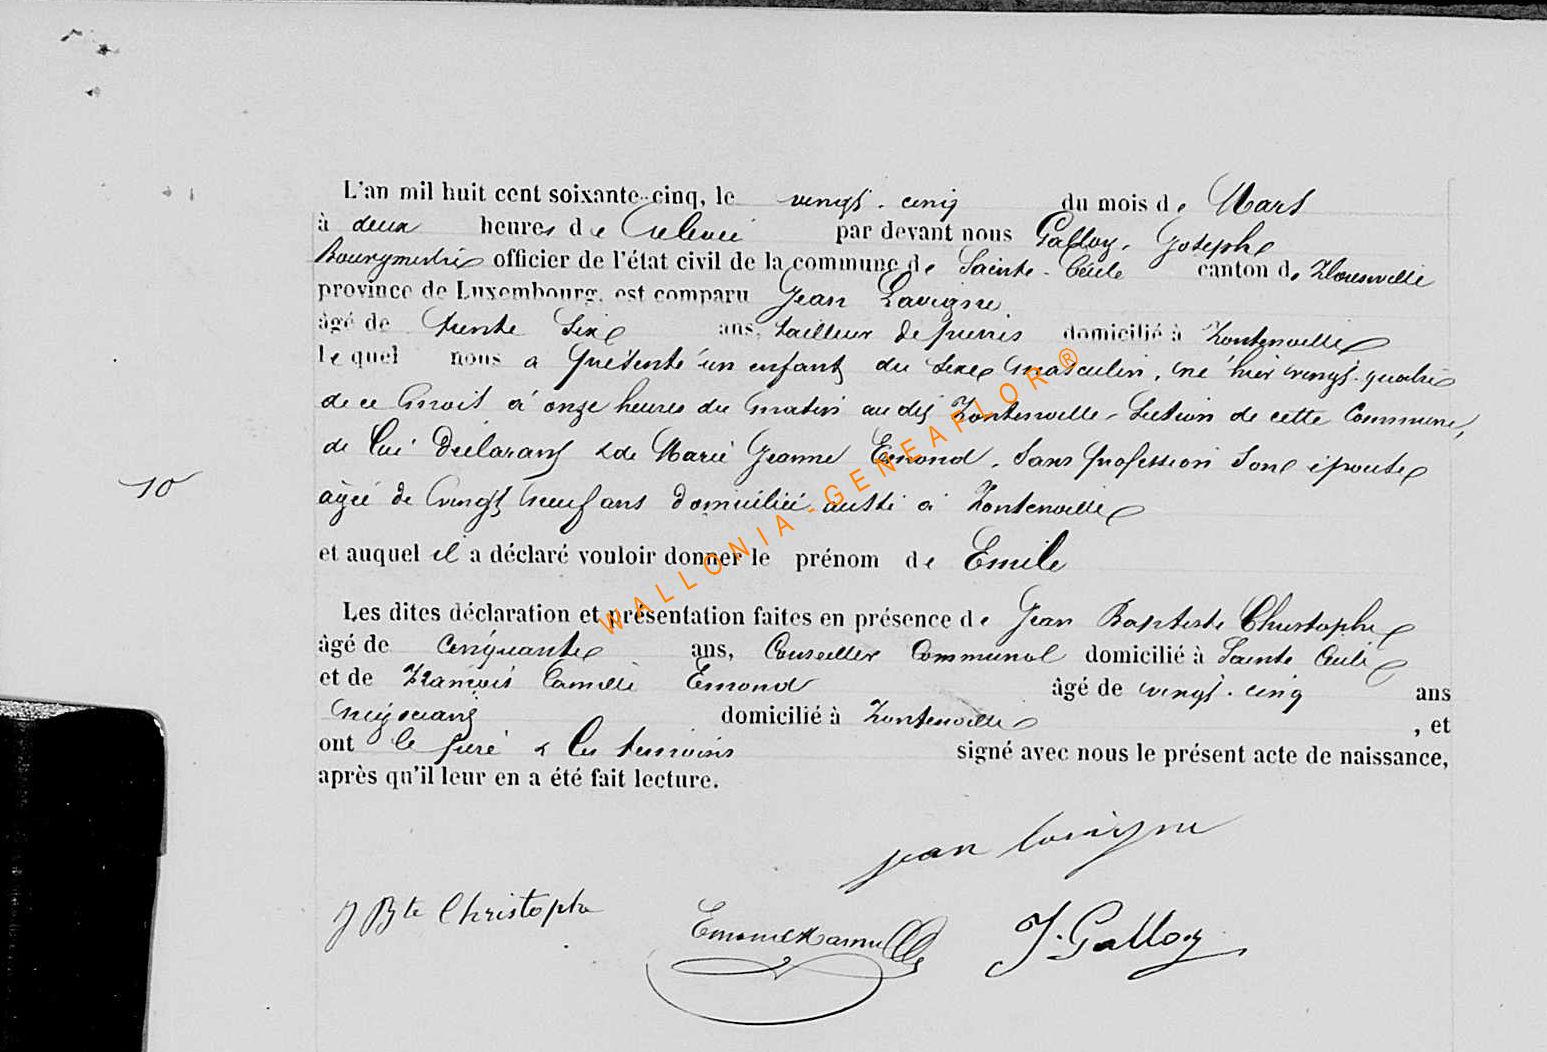 L'an mil huit cent soixante-cinq, le vingt-cinq du mois de Mars
à deux heures de relevée par devant nous Galloy, Joseph
Bourgmestre officier de l'état civil de la commune de Sainte-Cécile canton de Florenville
province de Luxembourg, est comparu Jean Lavigne
âgé de trente six ans, tailleur de pierres domicilié à Fontenoille
le quel nous a présenté un enfant du sexe masculin, né hier vingt-quatre
de ce mois à onze heures du matin au dit Fontenoille, Section de cette Commune,
de lui déclarant & de Marie Jeanne Emond, sans profession son épouse
agée de vingt neuf ans domiciliée aussi à Fontenoille
10
et auquel il a déclaré vouloir donner le prénom de Emile
Les dites déclaration et présentation faites en présence de Jean Baptiste Christophe
âgé de cinquante ans, Conseiller Communal domicilié à Sainte Cécile
et de François Camille Emond âgé de vingt-cinq ans
négociant domicilié à Fontenoille , et
ont le père & les témoins signé avec nous le présent acte de naissance,
après qu'il leur en a été fait lecture.
jean lavigne
J Bte Christophe Emond Camille J. Galloy
WALLONIA-GENEAFLOR®